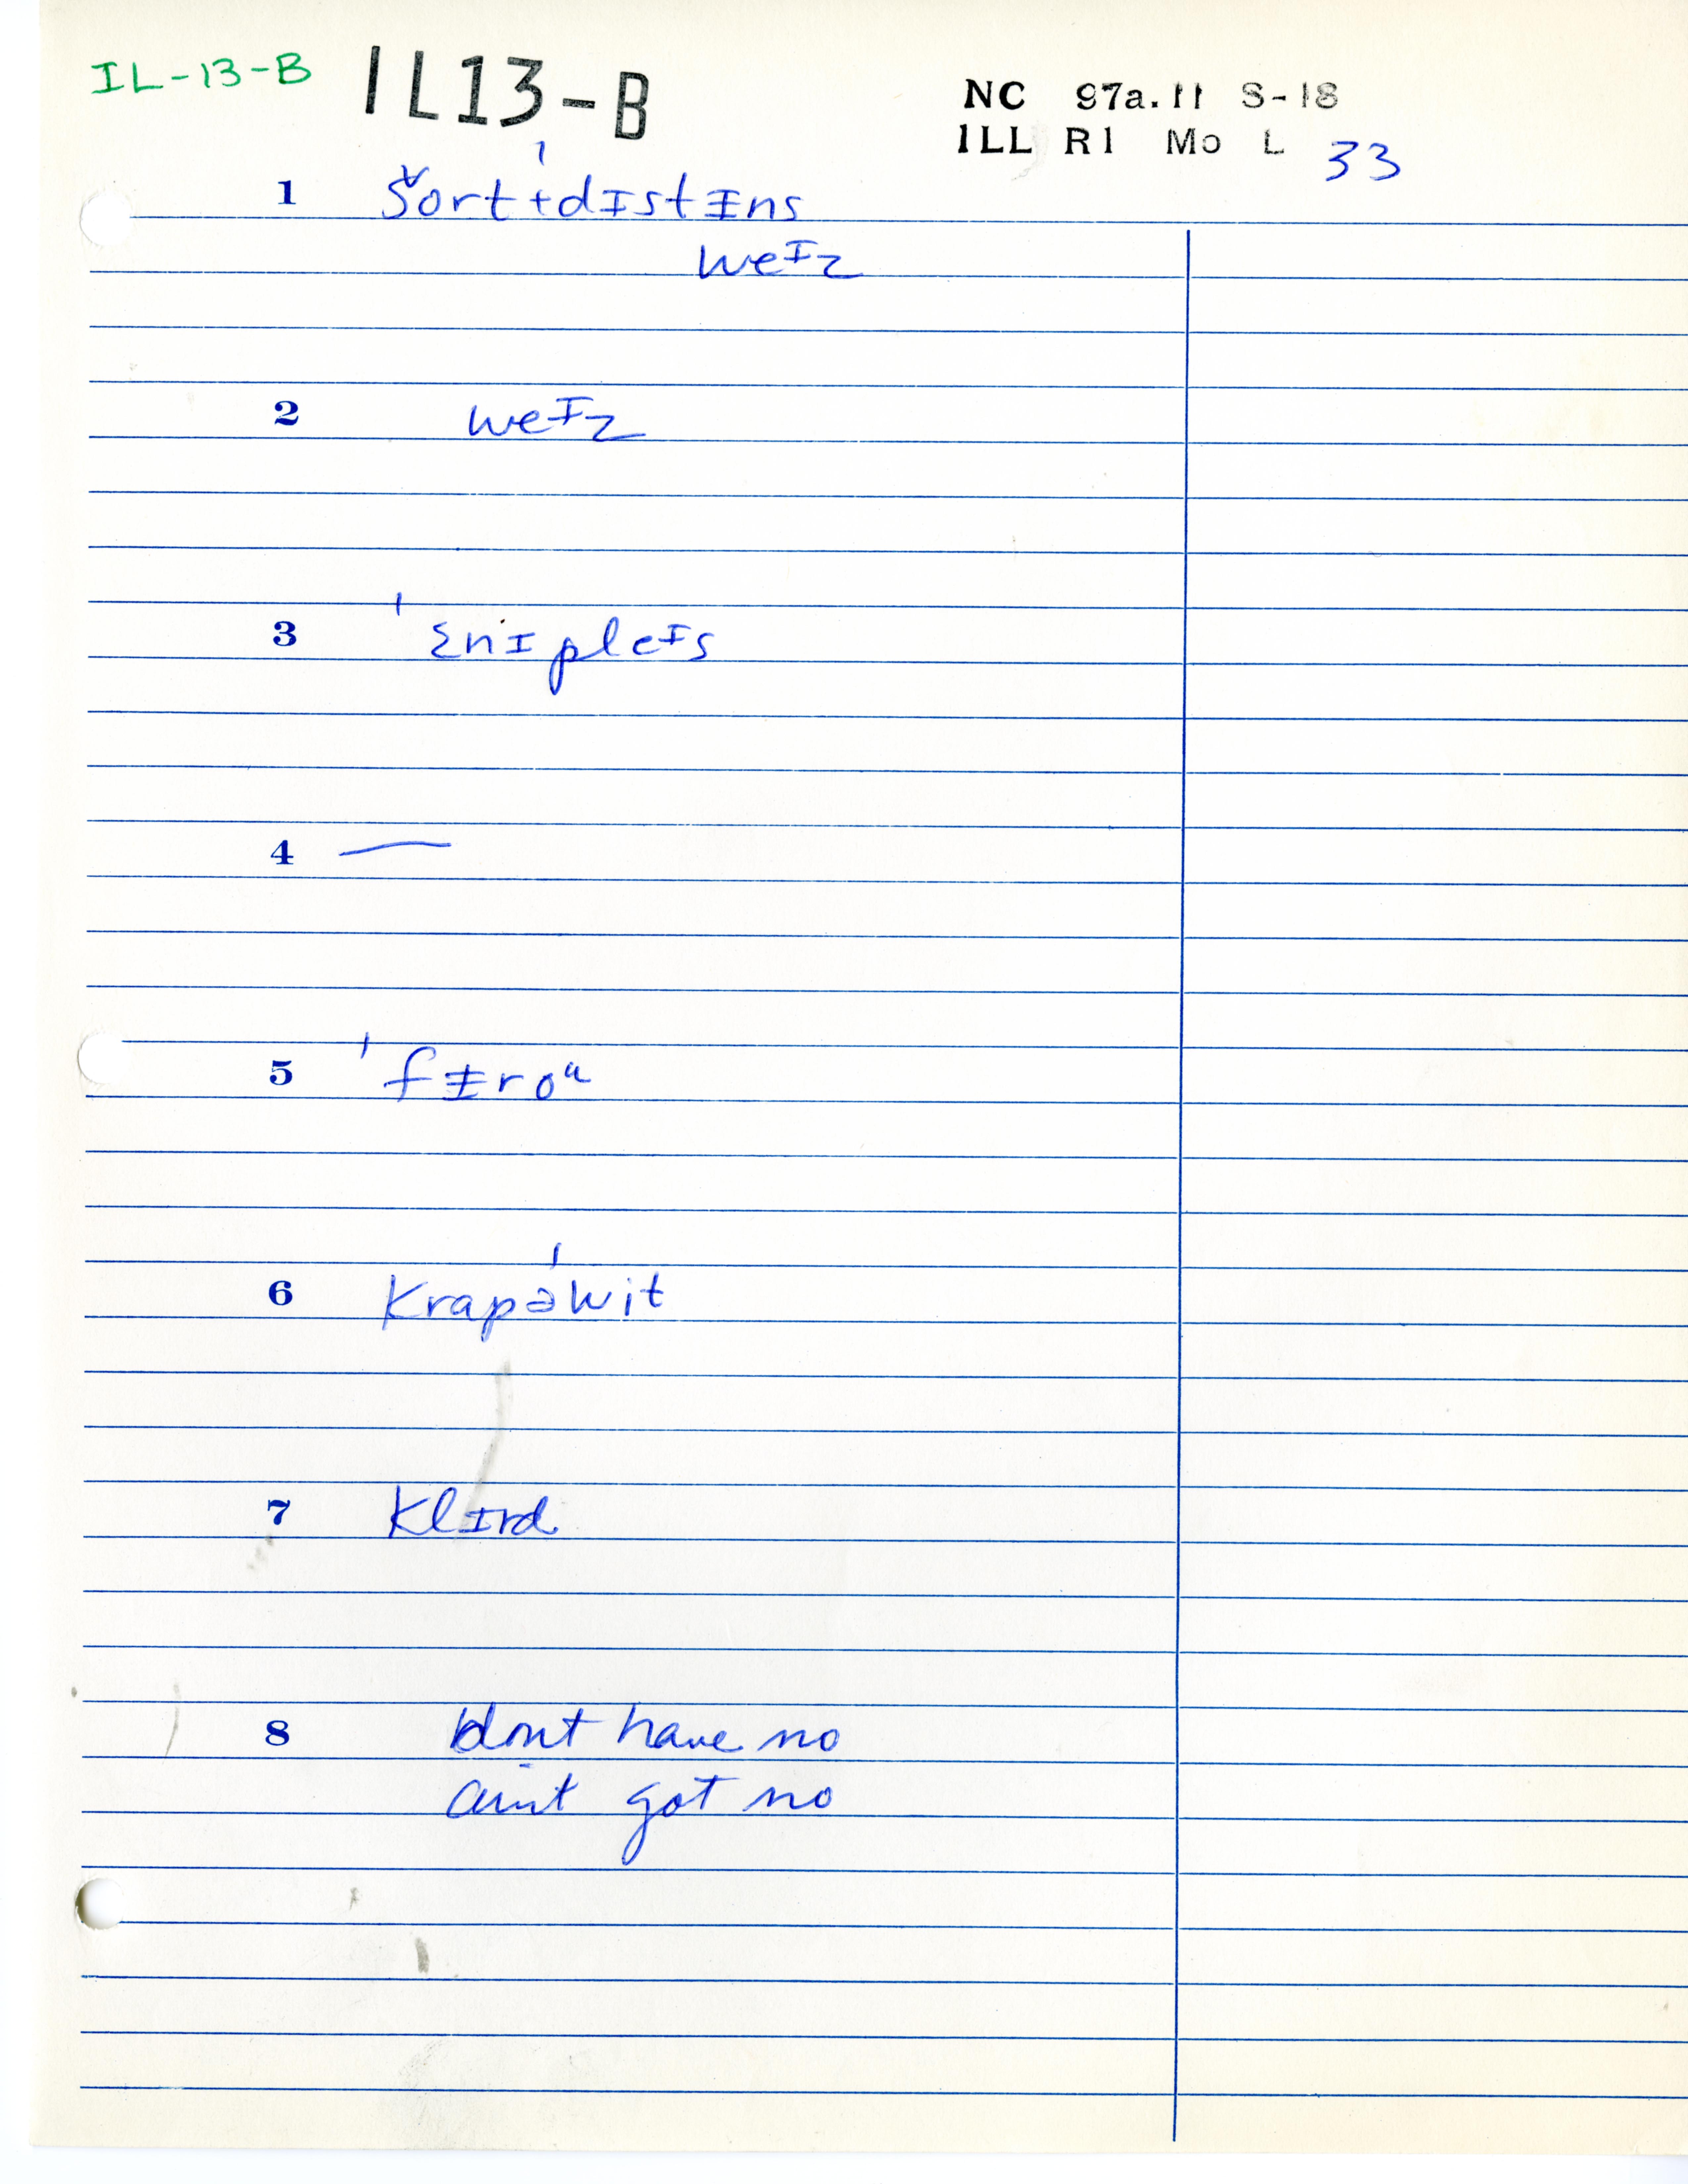 IL-13-B IL13-B NC 97a.11 S-18
ILL R1 Mo L 33
1 šort+ˈdɪstɨns
weᶦz
2 weᶦz
3 ˈɛnɪpleᶦs
4 —
5 ˈfɨroᵘ
6 krapəˈwit
7 klɪrd
8 dont have no
aint got no